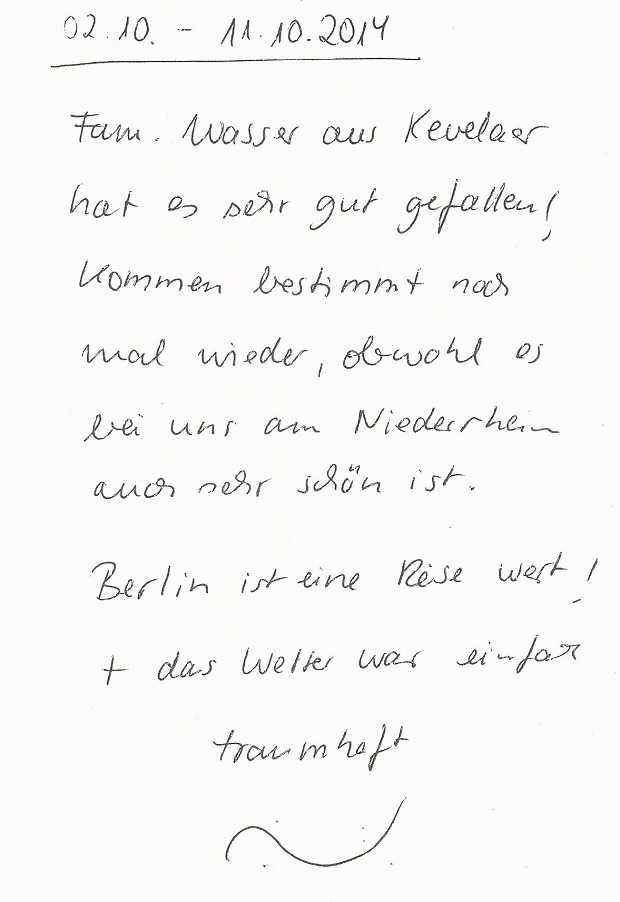 02.10. - 11.10.2014
Fam. Wasser aus Kevelaer
hat es sehr gut gefallen!
Kommen bestimmt noch
mal wieder, obwohl es
bei uns am Niederrhein
auch sehr schön ist.
Berlin ist eine Reise wert!
+ das Wetter war einfach
traumhaft